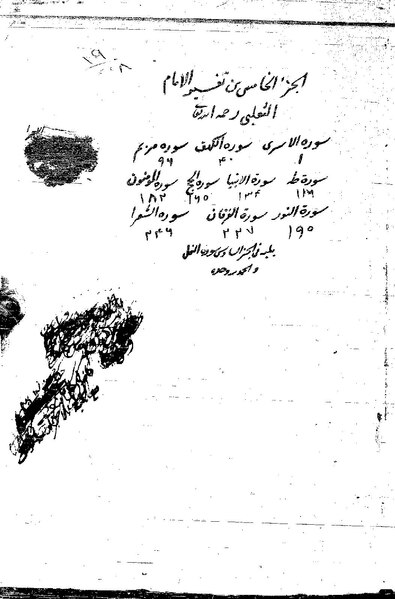 الجزء الخامس من تفسير الامام
الثعلبي رحمه الله تعالى
سورة الاسرى سورة الكهف سورة مريم
١ ٤٠ ٩٦
سورة طه سورة الانبيا سورة الحج سورة المؤمنون
١١٦ ١٣٤ ١٦٥ ١٨٢
سورة النور سورة الفرقان سورة الشعرا
١٩٥ ٢٢٧ ٢٤٦
يليه في الجزء السادس سورة النمل
والحمد لله وحده